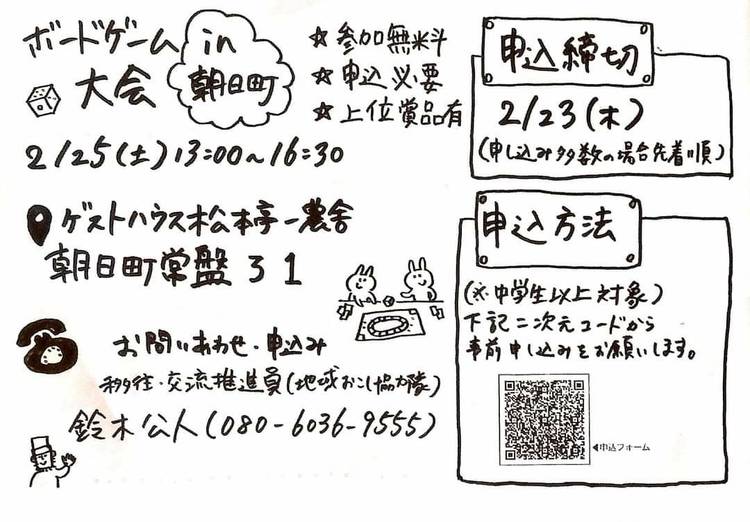 ボードゲーム大会
in
朝日町
☆参加無料
☆申込必要
☆上位賞品有
2/25(土) 13:00〜16:30
ゲストハウス松本亭一農舎
朝日町常盤31
お問いあわせ・申込み
移住・交流推進員(地域おこし協力隊)
鈴木公人(080-6036-9555)
申込締切
2/23(木)
(申し込み多数の場合先着順)
申込方法
(※中学生以上対象)
下記二次元コードから
事前申し込みをお願いします。
◀申込フォーム